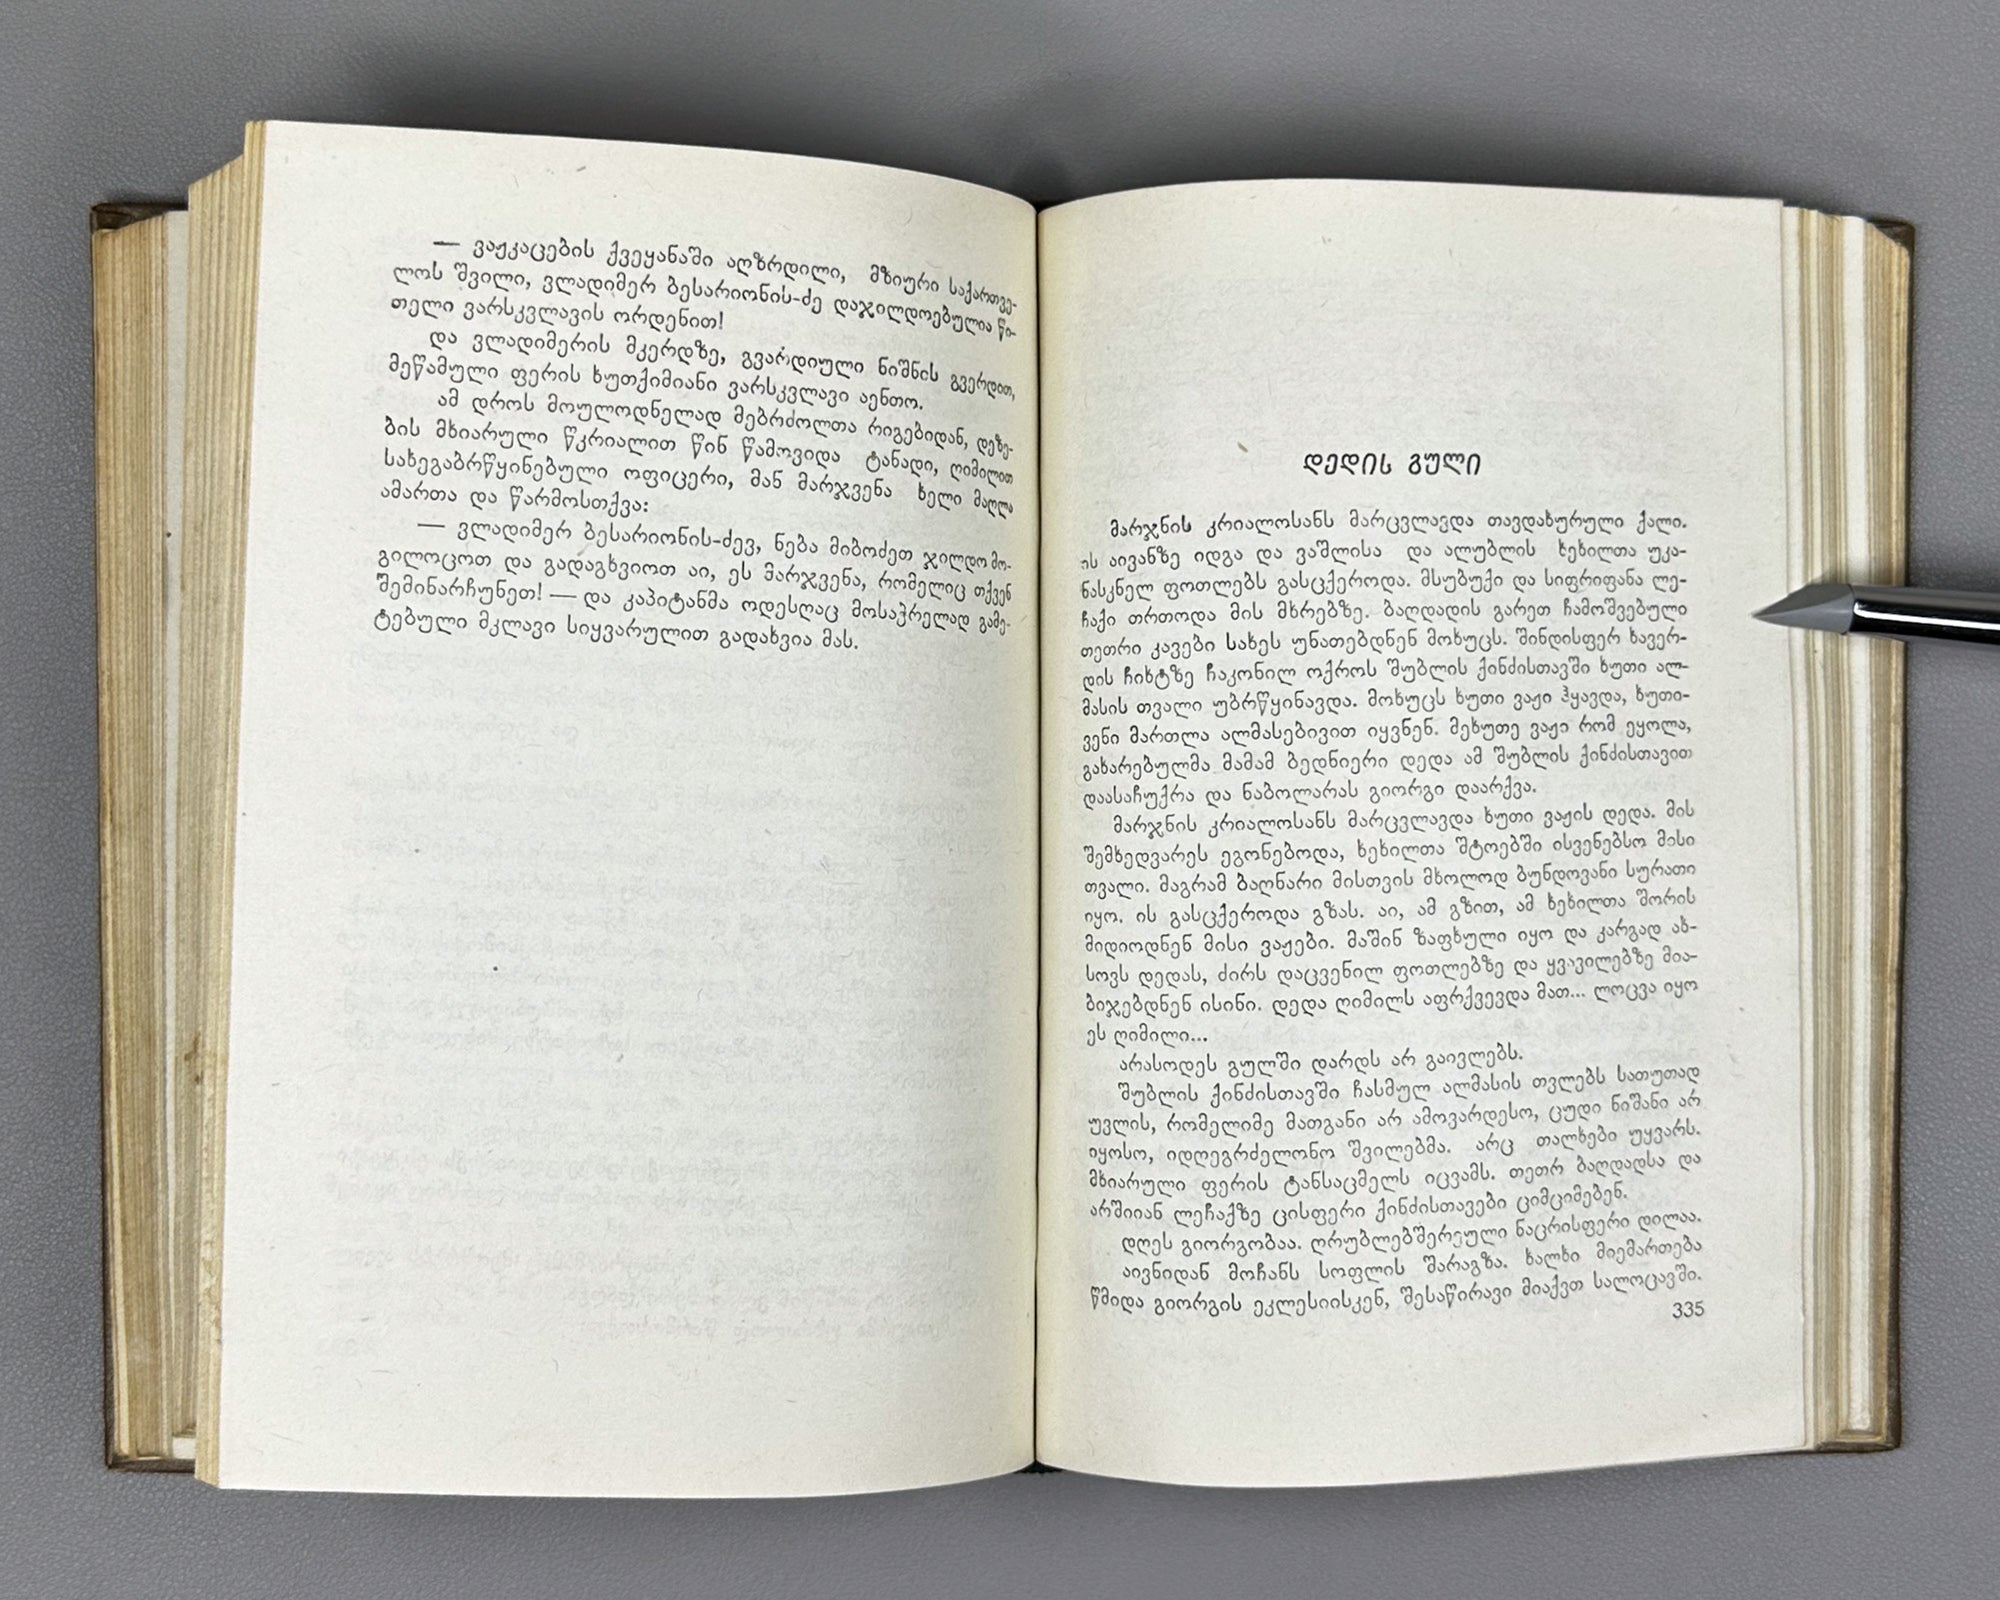 — ვაჟკაცების ქვეყანაში აღზრდილი, მზიური საქართვე-
ლოს შვილი, ვლადიმერ ბესარიონის-ძე დაჯილდოებულია წი-
თელი ვარსკვლავის ორდენით!
და ვლადიმერის მკერდზე, გვარდიული ნიშნის გვერდით,
მეწამული ფერის ხუთქიმიანი ვარსკვლავი აენთო.
ამ დროს მოულოდნელად მებრძოლთა რიგებიდან, დეზე-
ბის მხიარული წკრიალით წინ წამოვიდა ტანადი, ღიმილით
სახეგაბრწყინებული ოფიცერი, მან მარჯვენა ხელი მაღლა
ამართა და წარმოსთქვა:
— ვლადიმერ ბესარიონის-ძევ, ნება მიბოძეთ ჯილდო მო-
გილოცოთ და გადაგხვიოთ აი, ეს მარჯვენა, რომელიც თქვენ
შემინარჩუნეთ! — და კაპიტანმა ოდესღაც მოსაჭრელად გამე-
ტებული მკლავი სიყვარულით გადახვია მას.
დედის გული
მარჯნის კრიალოსანს მარცვლავდა თავდახურული ქალი.
ის აივანზე იდგა და ვაშლისა და ალუბლის ხეხილთა უკა-
ნასკნელ ფოთლებს გასცქეროდა. მსუბუქი და სიფრიფანა ლე-
ჩაქი თრთოდა მის მხრებზე. ბაღდადის გარეთ ჩამოშვებული
თეთრი კავები სახეს უნათებდნენ მოხუცს. შინდისფერ ხავერ-
დის ჩიხტზე ჩაკონილ ოქროს შუბლის ქინძისთავში ხუთი ალ-
მასის თვალი უბრწყინავდა. მოხუცს ხუთი ვაჟი ჰყავდა, ხუთი-
ვენი მართლა ალმასებივით იყვნენ. მეხუთე ვაჟი რომ ეყოლა,
გახარებულმა მამამ ბედნიერი დედა ამ შუბლის ქინძისთავით
დაასაჩუქრა და ნაბოლარას გიორგი დაარქვა.
მარჯნის კრიალოსანს მარცვლავდა ხუთი ვაჟის დედა. მის
შემხედვარეს ეგონებოდა, ხეხილთა შტოებში ისვენებსო მისი
თვალი. მაგრამ ბაღნარი მისთვის მხოლოდ ბუნდოვანი სურათი
იყო. ის გასცქეროდა გზას. აი, ამ გზით, ამ ხეხილთა შორის
მიდიოდნენ მისი ვაჟები. მაშინ ზაფხული იყო და კარგად ახ-
სოვს დედას, ძირს დაცვენილ ფოთლებზე და ყვავილებზე მია-
ბიჯებდნენ ისინი. დედა ღიმილს აფრქვევდა მათ... ლოცვა იყო
ეს ღიმილი...
არასოდეს გულში დარდს არ გაივლებს.
შუბლის ქინძისთავში ჩასმულ ალმასის თვლებს სათუთად
უვლის, რომელიმე მათგანი არ ამოვარდესო, ცუდი ნიშანი არ
იყოსო, იდღეგრძელონო შვილებმა. არც თალხები უყვარს.
მხიარული ფერის ტანსაცმელს იცვამს. თეთრ ბაღდადსა და
არშიიან ლეჩაქზე ცისფერი ქინძისთავები ციმციმებენ.
დღეს გიორგობაა. ღრუბლებშერეული ნაცრისფერი დილაა.
აივნიდან მოჩანს სოფლის შარაგზა. ხალხი მიემართება
წმიდა გიორგის ეკლესიისკენ, შესაწირავი მიაქვთ სალოცავში.
335